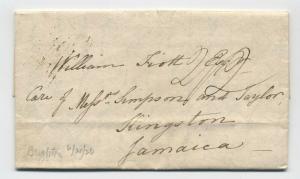 William Scott Esqr
Care of Messrs Simpson and Taylor
Kingston
Jamaica
Brighton